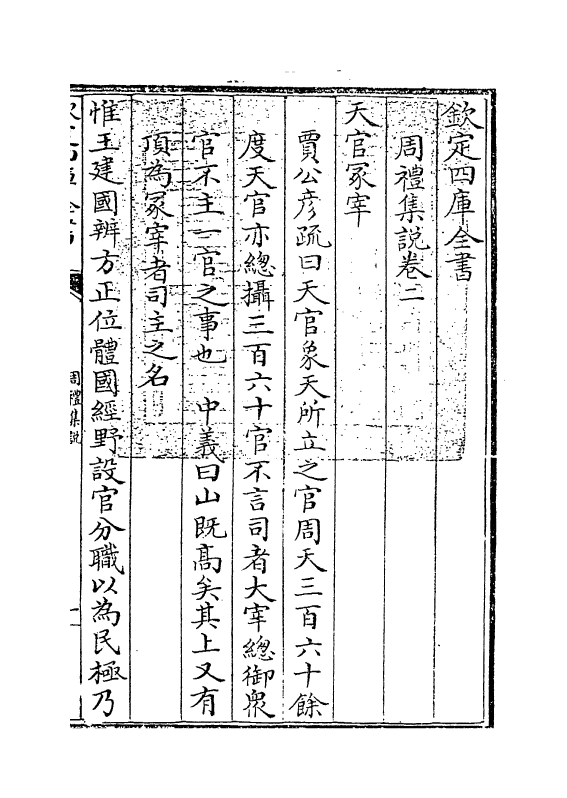 欽定四庫全書
周禮集說卷二
天官冢宰
賈公彦疏曰天官象天所立之官周天三百六十餘
度天官亦總攝三百六十官不言司者大宰總御衆
官不主一官之事也　中義曰山既髙矣其上又有
頂為冢宰者司主之名
惟王建國辨方正位體國經野設官分職以為民極乃
周禮集說